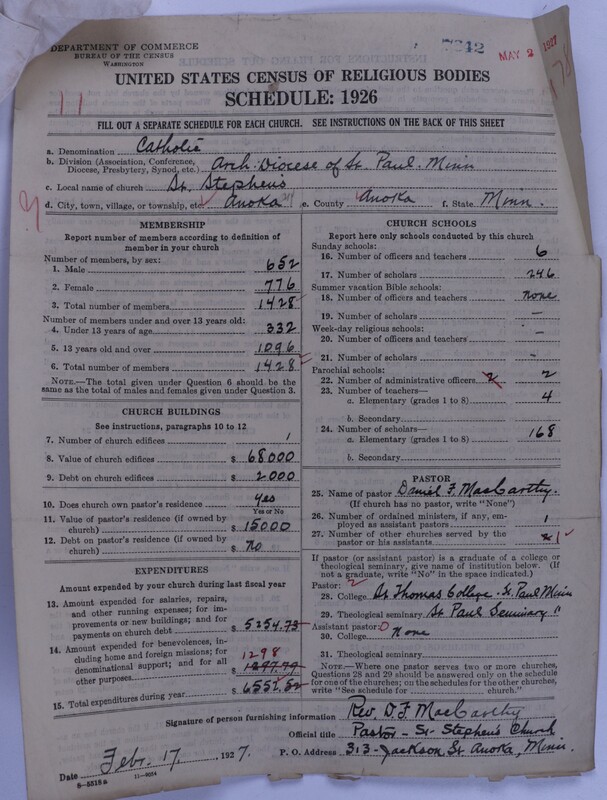 DEPARTMENT OF COMMERCE
BUREAU OF THE CENSUS
WASHINGTON
7342
MAY 2 1927
UNITED STATES CENSUS OF RELIGIOUS BODIES
SCHEDULE: 1926
11
FILL OUT A SEPARATE SCHEDULE FOR EACH CHURCH. SEE INSTRUCTIONS ON THE BACK OF THIS SHEET
a. Denomination Catholic
b. Division (Association, Conference, Diocese, Presbytery, Synod, etc.) Arch-Diocese of St. Paul. Minn
c. Local name of church St. Stephens
d. City, town, village, or township, etc. Anoka e. County Anoka f. State Minn.
MEMBERSHIP
Report number of members according to definition of
member in your church
Number of members, by sex:
1. Male 652
2. Female 776
3. Total number of members 1428
Number of members under and over 13 years old:
4. Under 13 years of age 332
5. 13 years old and over 1096
6. Total number of members 1428
NOTE.—The total given under Question 6 should be the
same as the total of males and females given under Question 3.
CHURCH BUILDINGS
See instructions, paragraphs 10 to 12
7. Number of church edifices 1
8. Value of church edifices $ 68000
9. Debt on church edifices $ 2000
10. Does church own pastor's residence yes
Yes or No
11. Value of pastor's residence (if owned by
church) $ 15000
12. Debt on pastor's residence (if owned by
church) $ No
EXPENDITURES
Amount expended by your church during last fiscal year
13. Amount expended for salaries, repairs,
and other running expenses; for im-
provements or new buildings; and for
payments on church debt $ 5254.73
14. Amount expended for benevolences, in-
cluding home and foreign missions; for
denominational support; and for all
other purposes $ 1298 1297.79
15. Total expenditures during year $ 6552.52
CHURCH SCHOOLS
Report here only schools conducted by this church
Sunday schools:
16. Number of officers and teachers 6
17. Number of scholars 246
Summer vacation Bible schools:
18. Number of officers and teachers none
19. Number of scholars –
Week-day religious schools:
20. Number of officers and teachers –
21. Number of scholars -
Parochial schools:
22. Number of administrative officers 2 2
23. Number of teachers—
a. Elementary (grades 1 to 8) 4
b. Secondary
24. Number of scholars—
a. Elementary (grades 1 to 8) 168
b. Secondary
PASTOR
25. Name of pastor Daniel F. MacCarthy.
(If church has no pastor, write "None")
26. Number of ordained ministers, if any, em-
ployed as assistant pastors 1
27. Number of other churches served by the
pastor or his assistants 1
If pastor (or assistant pastor) is a graduate of a college or
theological seminary, give name of institution below. (If
not a graduate, write "No" in the space indicated.)
Pastor: 2
28. College St Thomas College - St. Paul Minn
29. Theological seminary St Paul Seminary "
Assistant pastor: 0
30. College None
31. Theological seminary
NOTE.—Where one pastor serves two or more churches,
Questions 28 and 29 should be answered only on the schedule
for one of the churches; on the schedules for the other churches,
write "See schedule for church."
Signature of person furnishing information Rev. D. F. MacCarthy
Official title Pastor - St Stephen's Church
Date Febr. 17, 1927. P. O. Address 313 - Jackson St Anoka, Minn.
8-5518a 11-9024